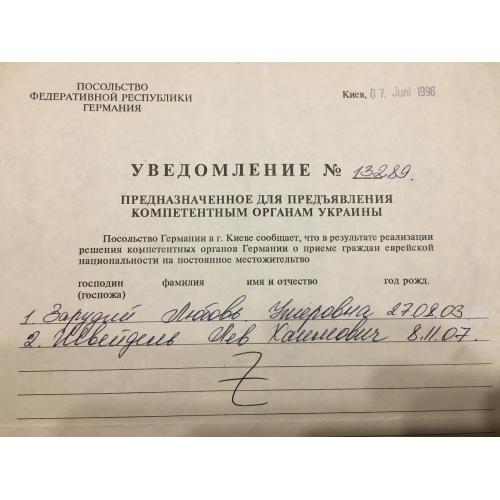 ПОСОЛЬСТВО
ФЕДЕРАТИВНОЙ РЕСПУБЛИКИ
ГЕРМАНИЯ
Киев, 07. Juni 1996
УВЕДОМЛЕНИЕ № 13289.
ПРЕДНАЗНАЧЕННОЕ ДЛЯ ПРЕДЪЯВЛЕНИЯ
КОМПЕТЕНТНЫМ ОРГАНАМ УКРАИНЫ
Посольство Германии в г. Киеве сообщает, что в результате реализации
решения компетентных органов Германии о приеме граждан еврейской
национальности на постоянное местожительство
господин фамилия имя и отчество год рожд.
(госпожа)
1. Зарудий Любовь Умеровна 27.08.03.
2. Швейдель Лев Хаимович 8.11.07.